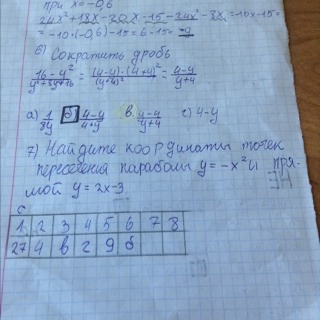 при x=-0,6
24x²+18x-20x-15-24x²-8x=-10x-15=
=-10·(-0,6)-15=6-15=-9
6) Сократить дробь
16-y²/y²+8y+16=(4-y)·(4+y)/(y+4)²=4-y/y+4
а) 1/8y б) 4-y/4+y в. y-4/y+4 г) 4-y
7) Найдите координаты точек
пересечения параболы y=-x² и пря-
мой y=2x-3
С
1 2 3 4 5 6 7 8
27 4 в г 9 б